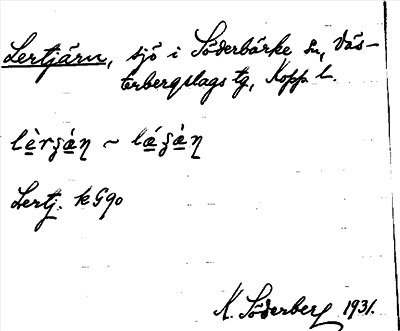 Lertjärn, sjö i Söderbärke sn, Väs-
terbergslags tg, Kopp. l.
lèrʂa̱n ~
Lertj. kG90
K. Söderberg 1931.